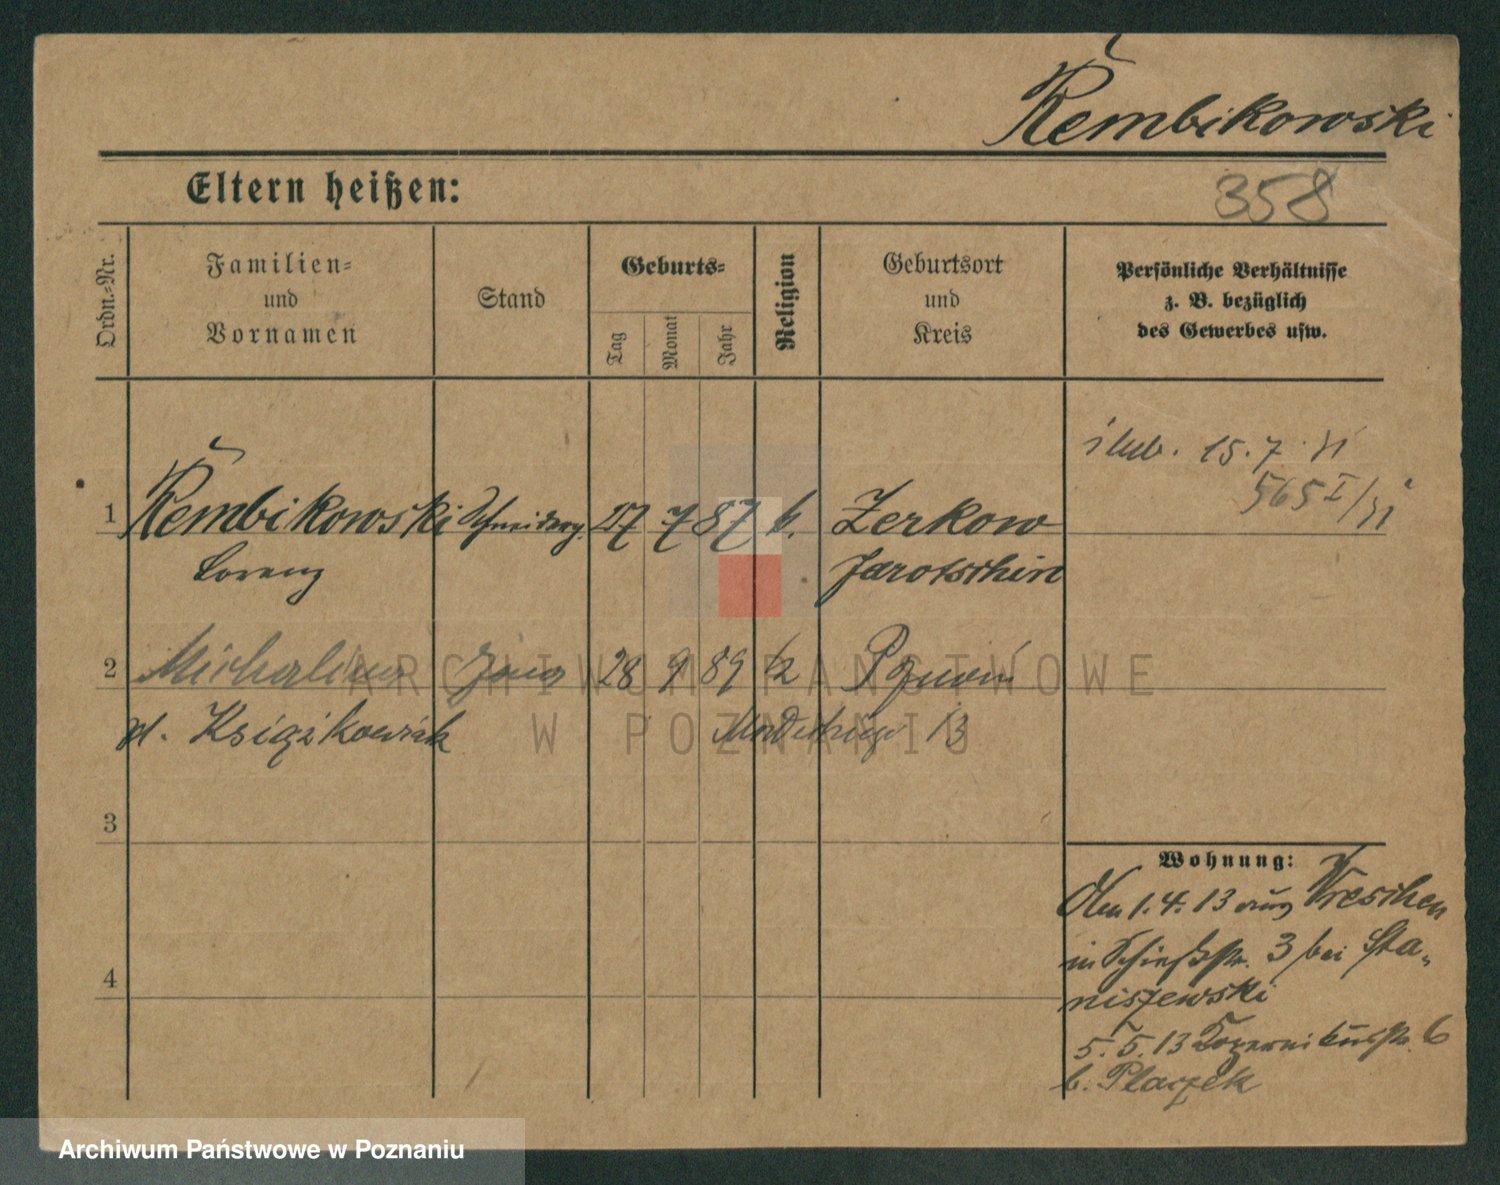 Rembikowski
Eltern heißen:
358
Ordn.-Nr.
Familien-
und
Vornamen
Stand
Geburts-
Tag
Monat
Jahr
Religion
Geburtsort
und
Kreis
Persönliche Verhältnisse
z. B. bezüglich
des Gewerbes usw.
ślub. 15.7.
565 I/
1 Rembikowski 27 7 87 k. Zerkow
Lorenz Jarotschin
2 Michalina żona 28 9 89 k Poznań
Książkowiak 13
3
Wohnung:
1.4.13 aus Wreschen
in Schießstr. 3 bei Sta-
niszewski
4
5.5.13 6
b. Placzek
ARCHIWUM PAŃSTWOWE
W POZNANIU
Archiwum Państwowe w Poznaniu